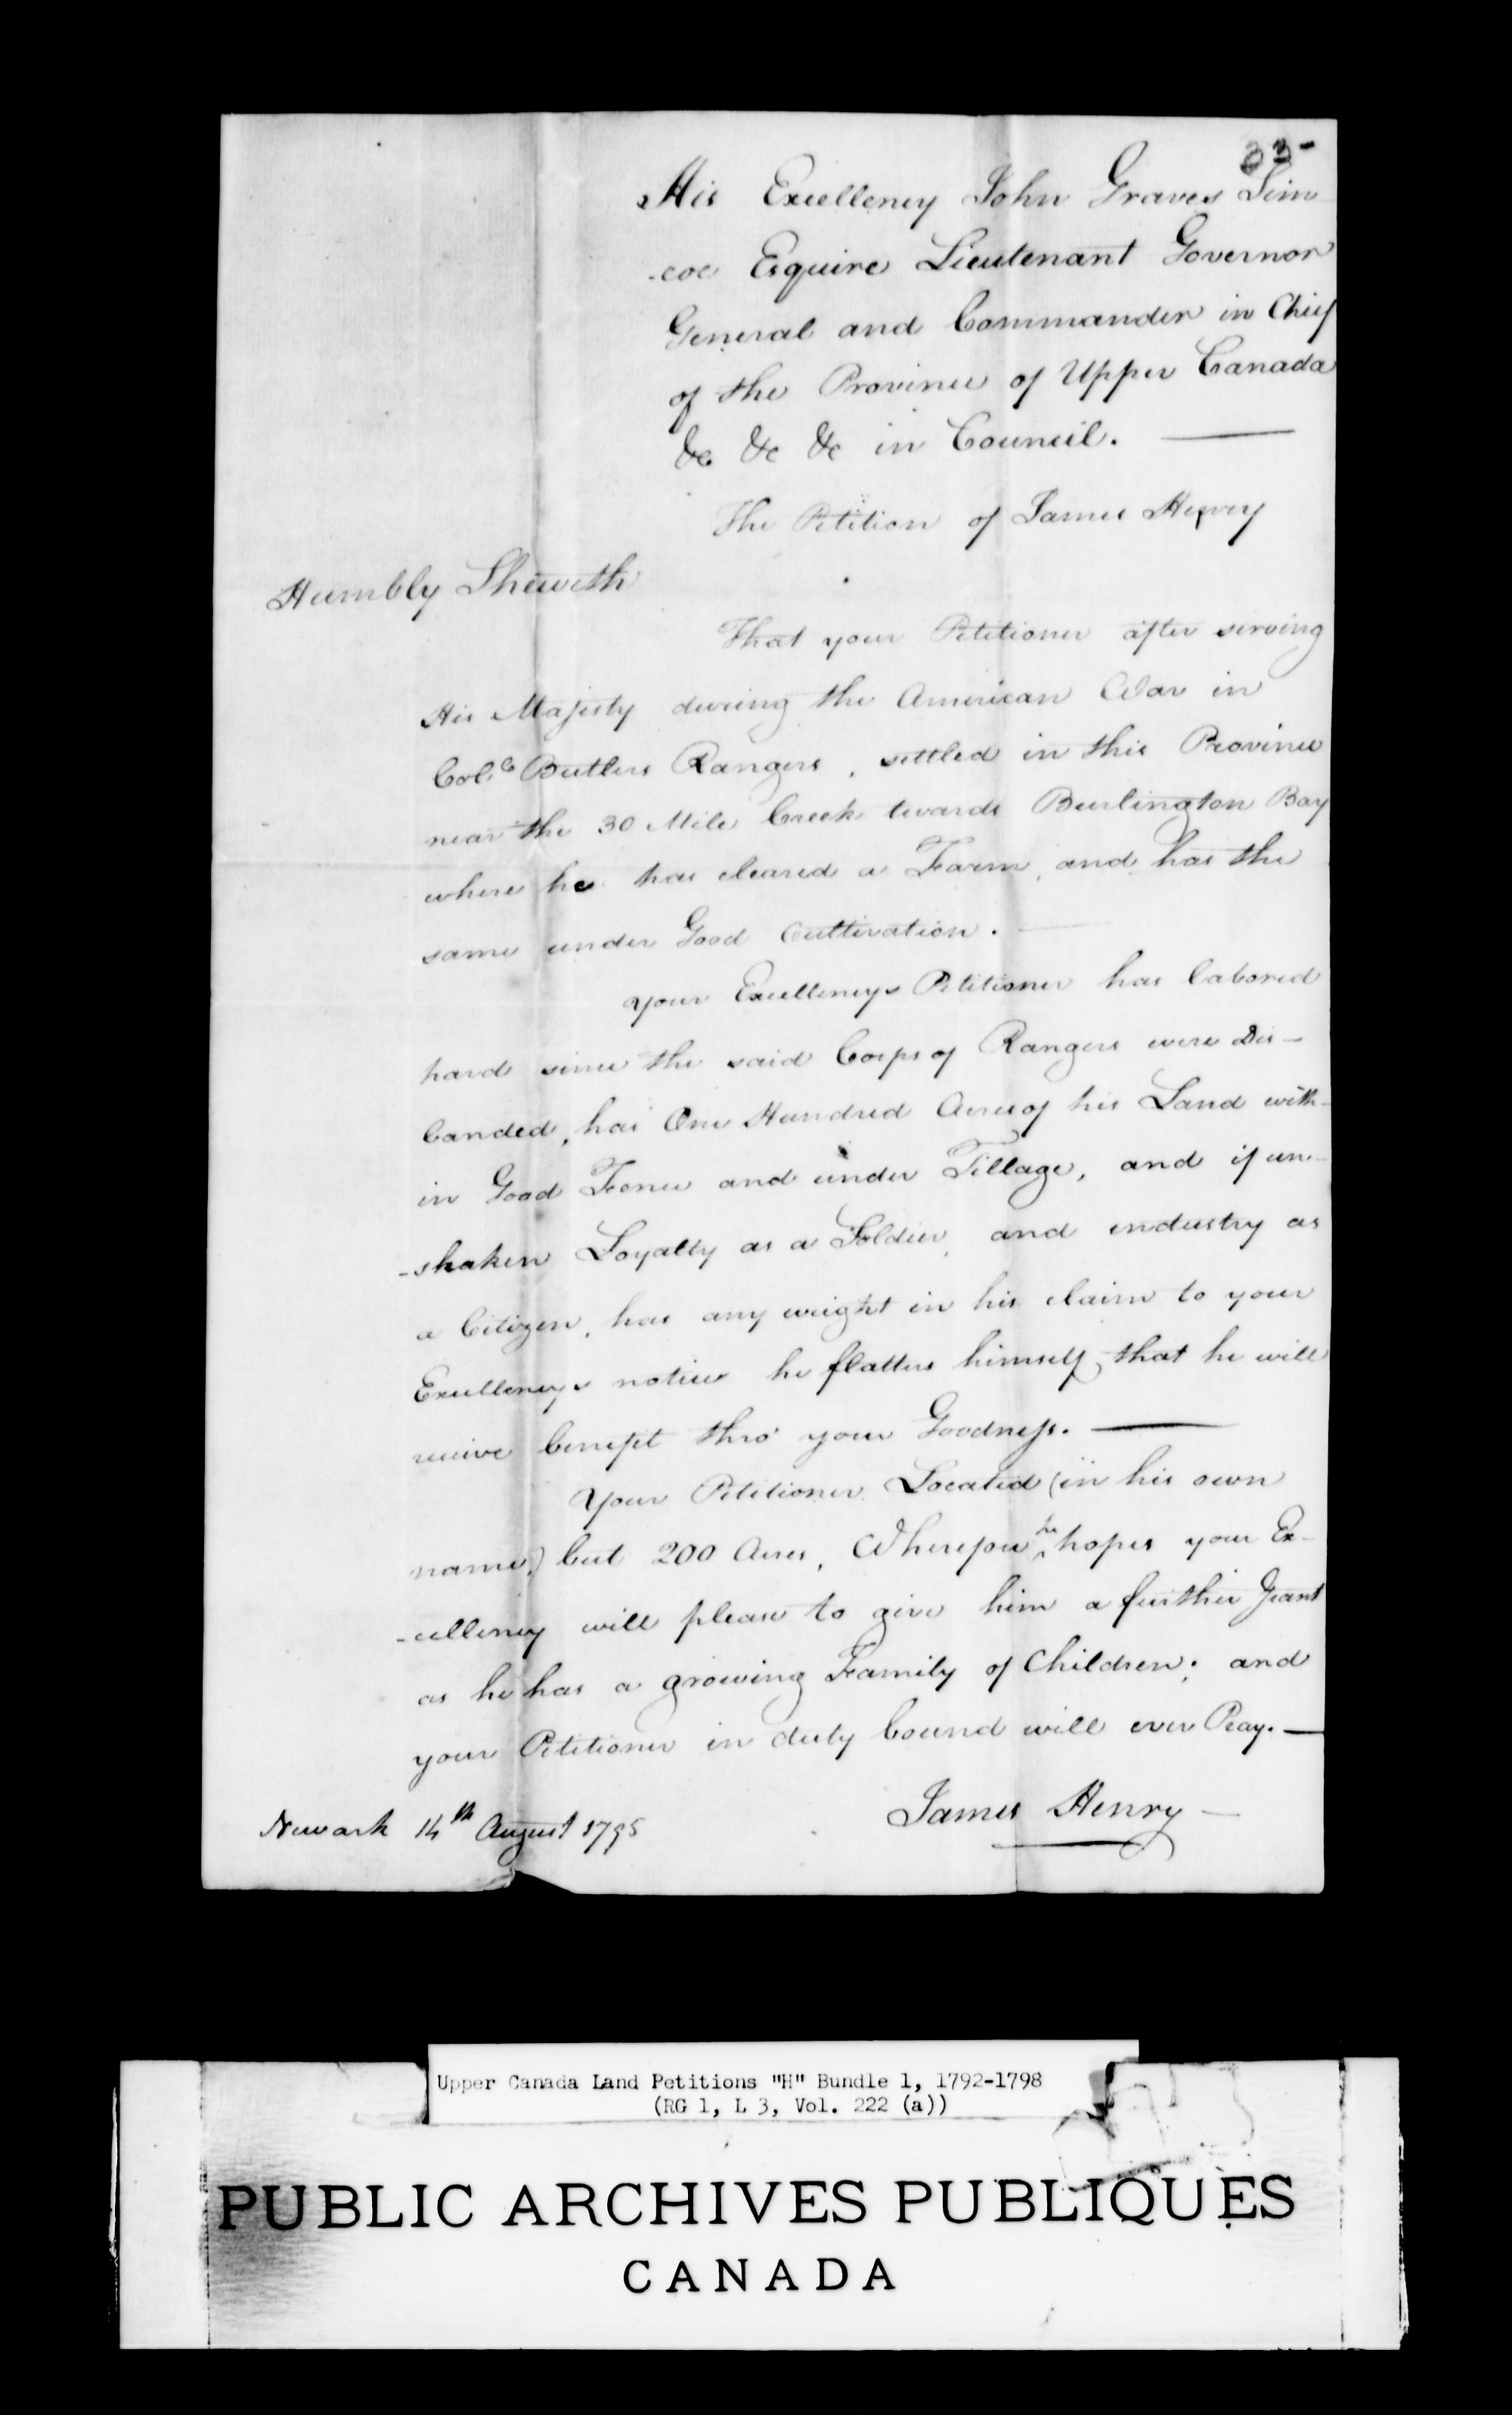 33-
His Excellency John Graves Sim
-coe Esquire Lieutenant Governor
General and Commander in Chief
of the Province of Upper Canada
&c &c &c in Council. —
The Petition of James Henry
Humbly Sheweth
That your Petitioner after serving
His Majesty during the American War in
Col.º Butlers Rangers, settled in this Province
near the 30 Mile Creek towards Burlington Bay
where he has cleared a Farm, and has the
same under Good Cultivation. —
Your Excellencys Petitioner has labored
hard since the said Corps of Rangers were Dis-
banded, has One Hundred Acres of his Land with-
in Good Fence and under Tillage, and if un-
-shaken Loyalty as a Soldier, and industry as
a Citizen, has any weight in his claim to your
Excellencys notice he flatters himself, that he will
receive benefit thro' your Goodness. —
Your Petitioner Located (in his own
name,) but 200 Acres, Wherefore he hopes your Ex-
-cellency will please to give him a further Grant
as he has a growing Family of Children; and
your Petitioner in duty bound will ever Pray. —
James Henry —
Newark 14th August 1795
Upper Canada Land Petitions "H" Bundle 1, 1792-1798
(RG 1, L 3, Vol. 222 (a))
PUBLIC ARCHIVES PUBLIQUES
CANADA